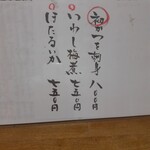 初かつを刺身 八〇〇円
いわし梅煮 七五〇円
ほたるいか 七五〇円